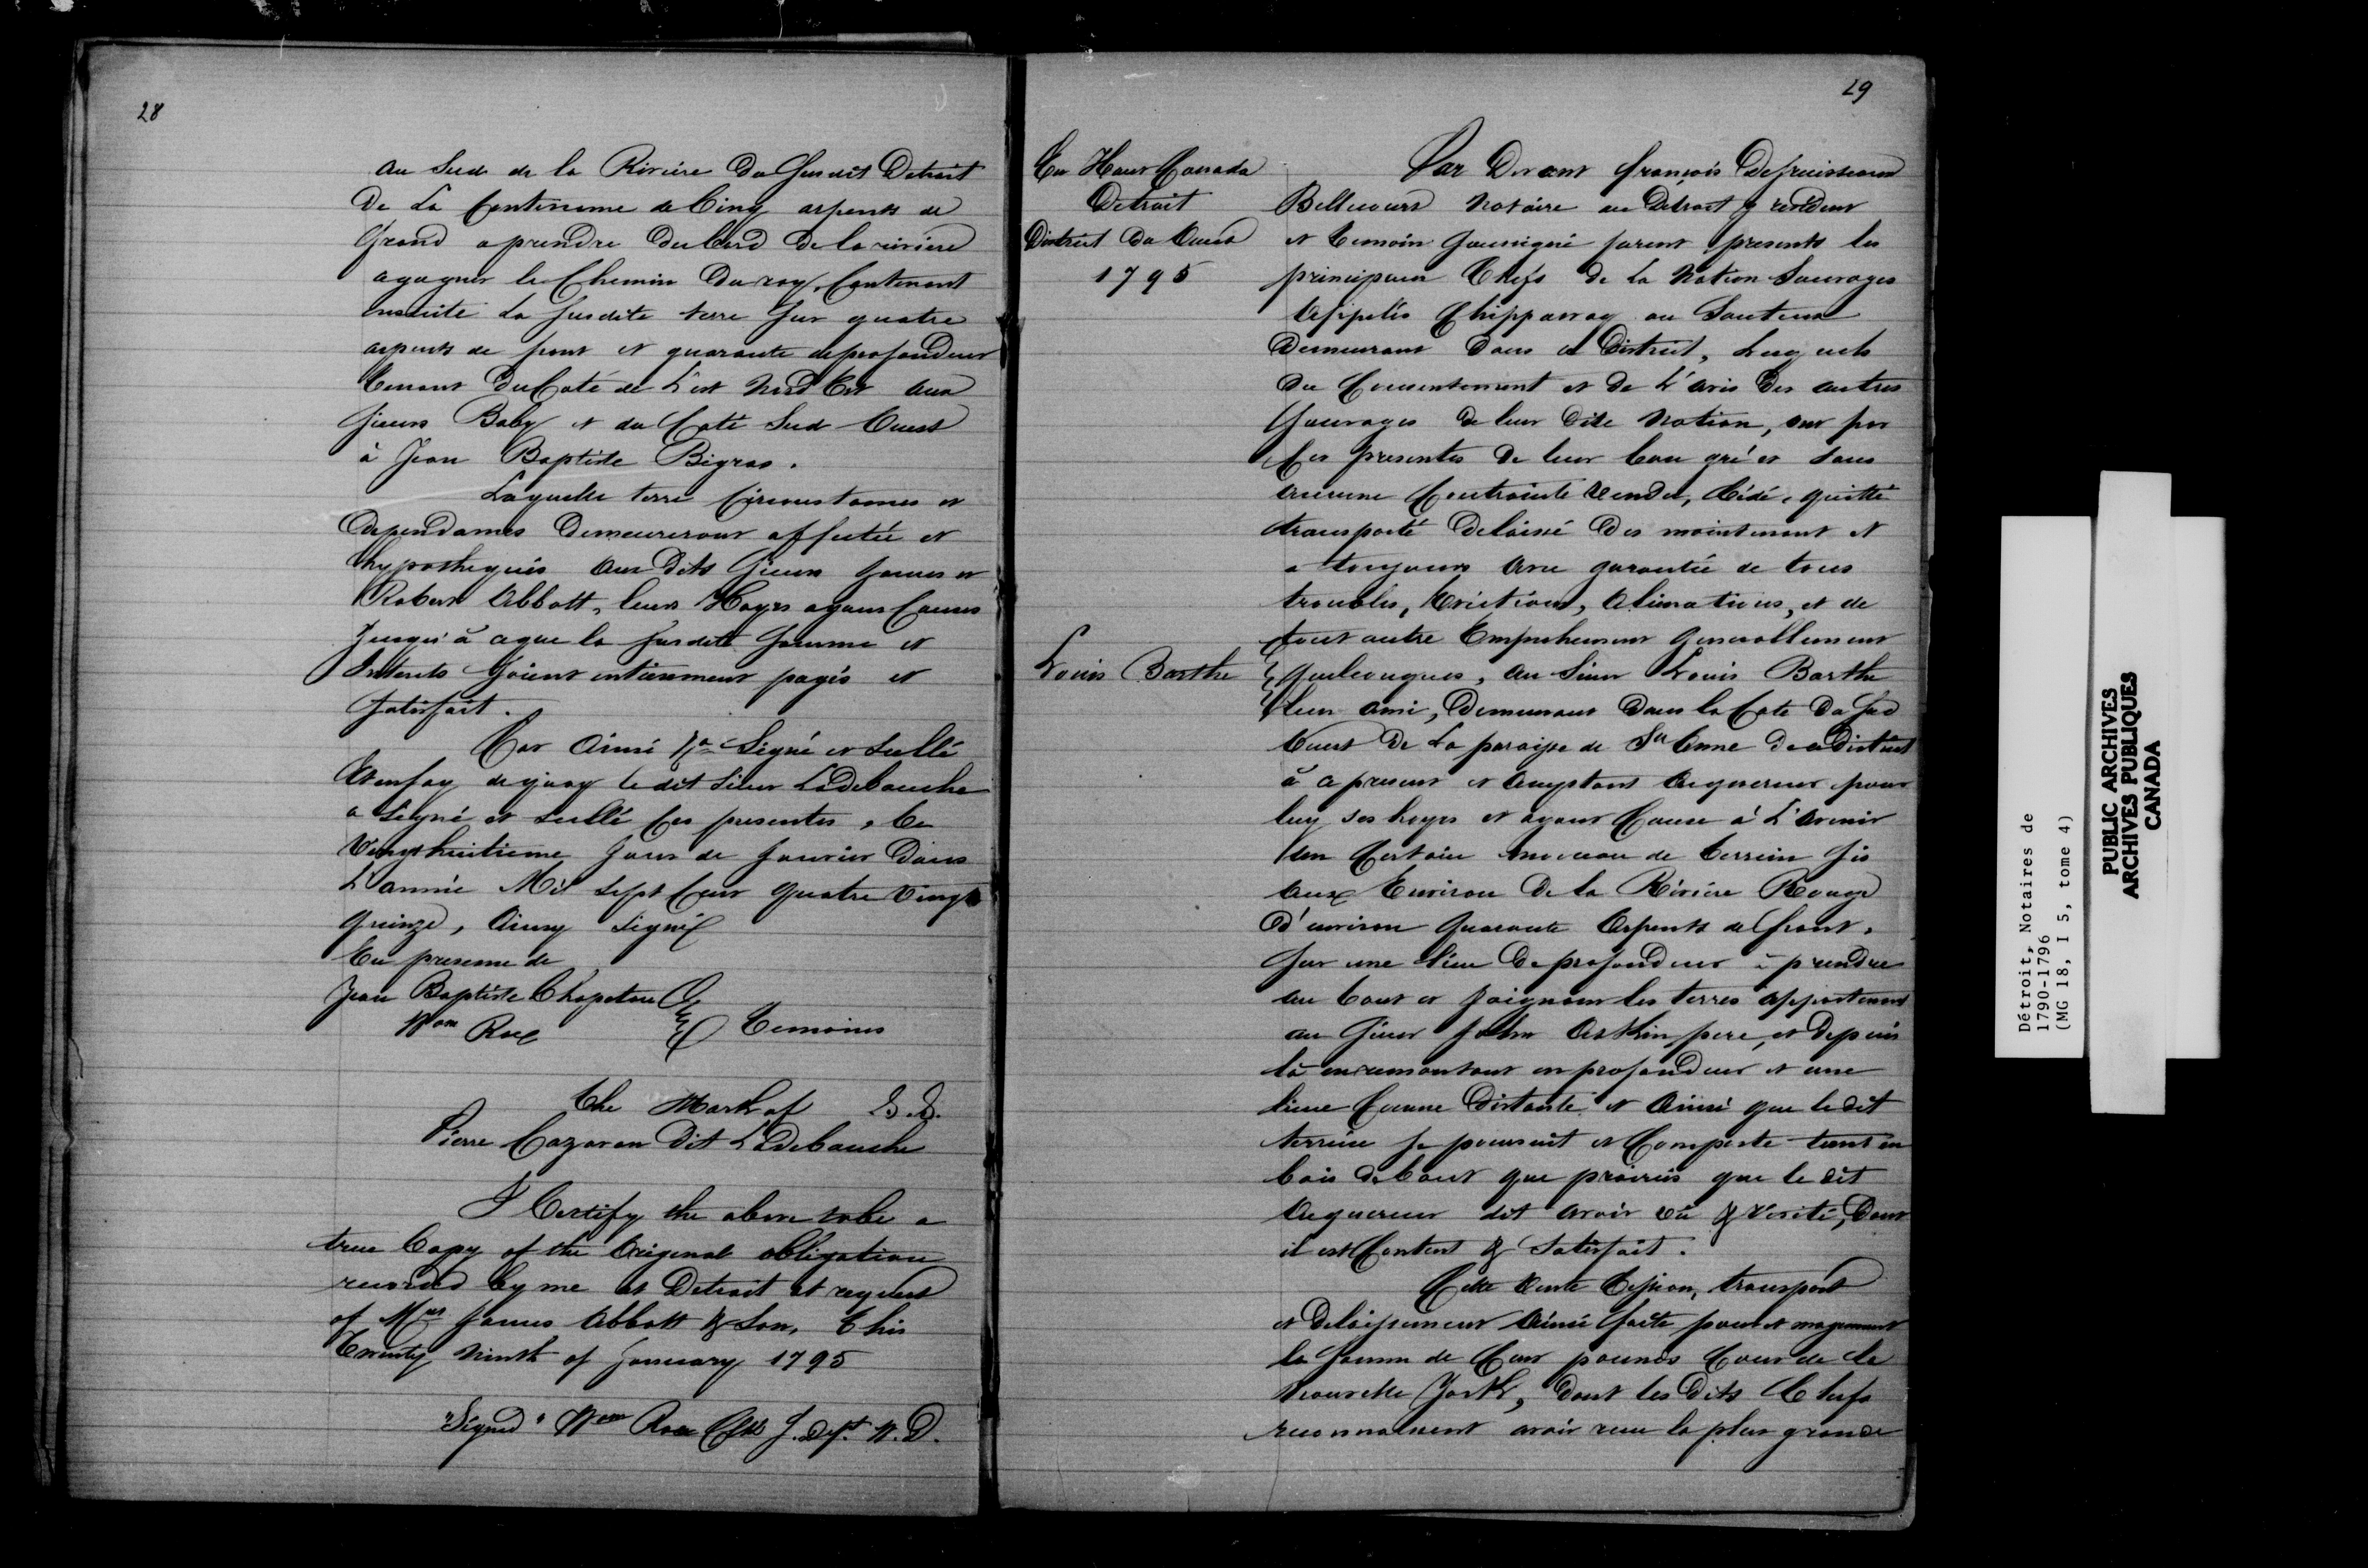 28
au Sud de la Riviere Du Susdit Detroit
De La Contenance de Cinq arpents de
front a prendre Du bord De la riviere
agagner le Chemin Du roy, Contenant
ensuite La susdite terre sur quatre
arpents de front et quarante de profondeur
tenant Du Coté de L'est Nord Est aux
sieurs Baby et du Coté Sud Ouest
à Jean Baptiste Bigras.
Laquelle terre Circonstances et
dependances Demeureront affectée et
hypothequés aux Dits Sieurs James et
Robert Abbott, leurs Hoyrs ayans Causes
Jusqu'à ceque la susdite somme et
Interets soient entierement payés et
satisfait.
Car Ainsi &a Signé et Scellé
En foy de quoy le dit Sieur LaDebauche
a Signé et scellé ces presentes, le
Vingthuitieme Jour de Janvier Dans
L'année Mil Sept Cent quatre Vingt
quinze, Ainsy Signé
En presence de
Jean Baptiste Chapeton
Wm Roe
Temoins
The Mark of L.S.
Pierre Cazavan Dit LaDebauche
I Certify the above to be a
true Copy of the Original obligation
recorded by me at Detroit at request
of Mrs James Abbott & Son, This
Twenty Ninth of January 1795
"Signed" Wm Roe Clk J. Dept. W.D.
29
En Haut Canada
Detroit
District Du Ouest
1795
Par Devant François Defruisseaux
Bellecourt Notaire au Detroit y residant
et temoin Soussigné furent presents les
principaux Chefs De La Nation Sauvages
Appelés Chippaway ou Sauteux
Demeurant Dans ce District, Lesquels
Du Consentement et De L'avis Des autres
Sauvages De leur Dite Nation, ont par
Ces presentes De leur bon gré et sans
aucune Contrainte Vendu, Cédé, quitté
transporté Delaissé Des maintenant et
a toujours avec garantie de tous
troubles, Evictions, Alienations, et de
tout autre Empechement Generallement
Louis Barthe
quelconques, au Sieur Louis Barthe
leur ami, Demeurant Dans la Cote Du Sud
Ouest De La paroisse de Ste Anne De ce District
à ce present et acceptant Acquereur pour
luy ses hoyrs et ayant Cause à L'avenir
un Certain morceau de terrein sis
aux Environ De la Riviere Rouge
D'environ quarante Arpents de front,
sur une lieue De profondeur à prendre
au bout et joignant les terres appartenant
au Sieur John Askin pere, et Depuis
là en remontant en profondeur et une
lieue Comme Distante et Ainsi que le dit
terrein se poursuit et Comporte tant en
bois debout que prairies que le dit
Acquereur dit avoir vû & Visité, Dont
il est Content & Satisfait.
Cette Vente Cession, transport
et Delaissement Ainsi faite pour et moyennant
la somme de Cent pounds Cour de la
Nouvelle York, Dont les Dits Chefs
reconnoissent avoir recu la plus grande
Détroit, Notaires de
1790-1796
(MG 18, I 5, tome 4)
PUBLIC ARCHIVES
ARCHIVES PUBLIQUES
CANADA